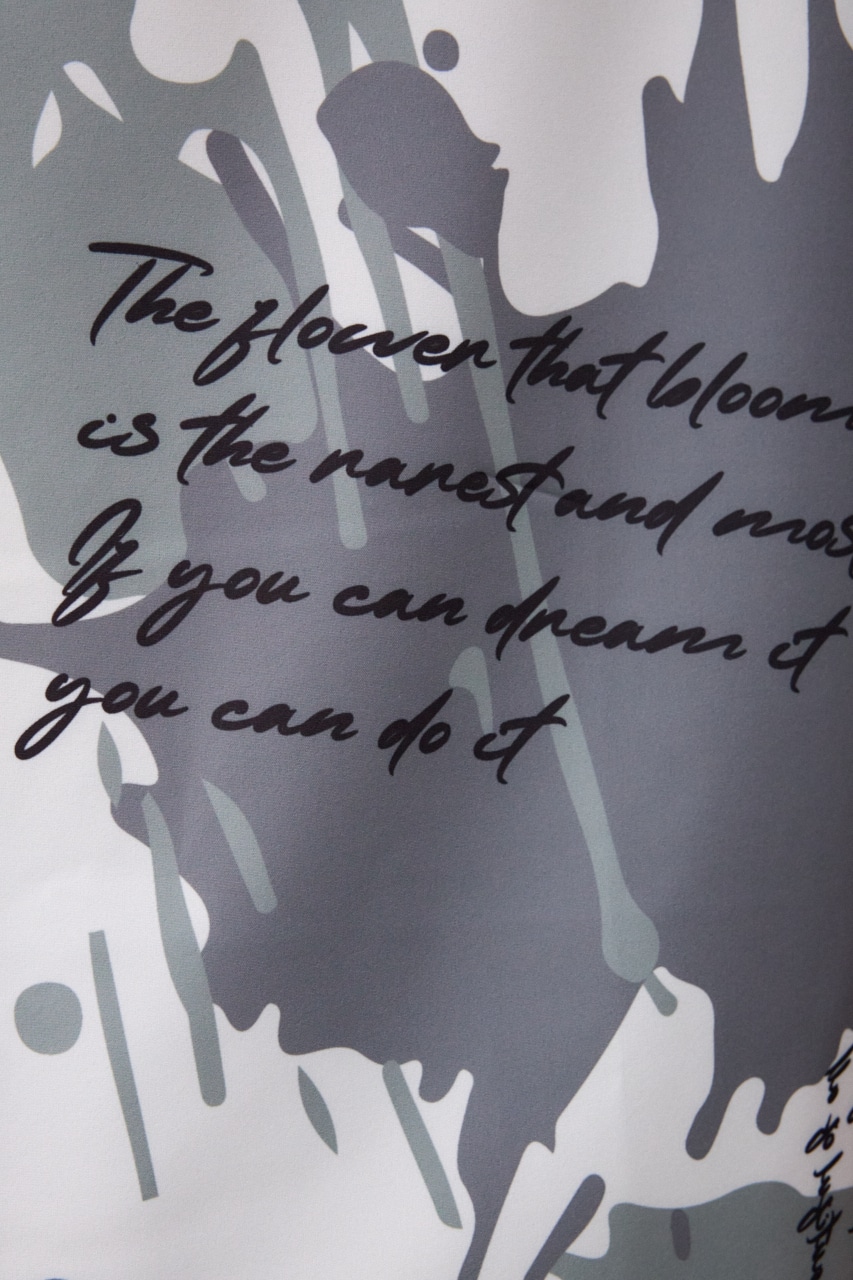 The flower that bloom
is the rarest and mos
If you can dream it
you can do it